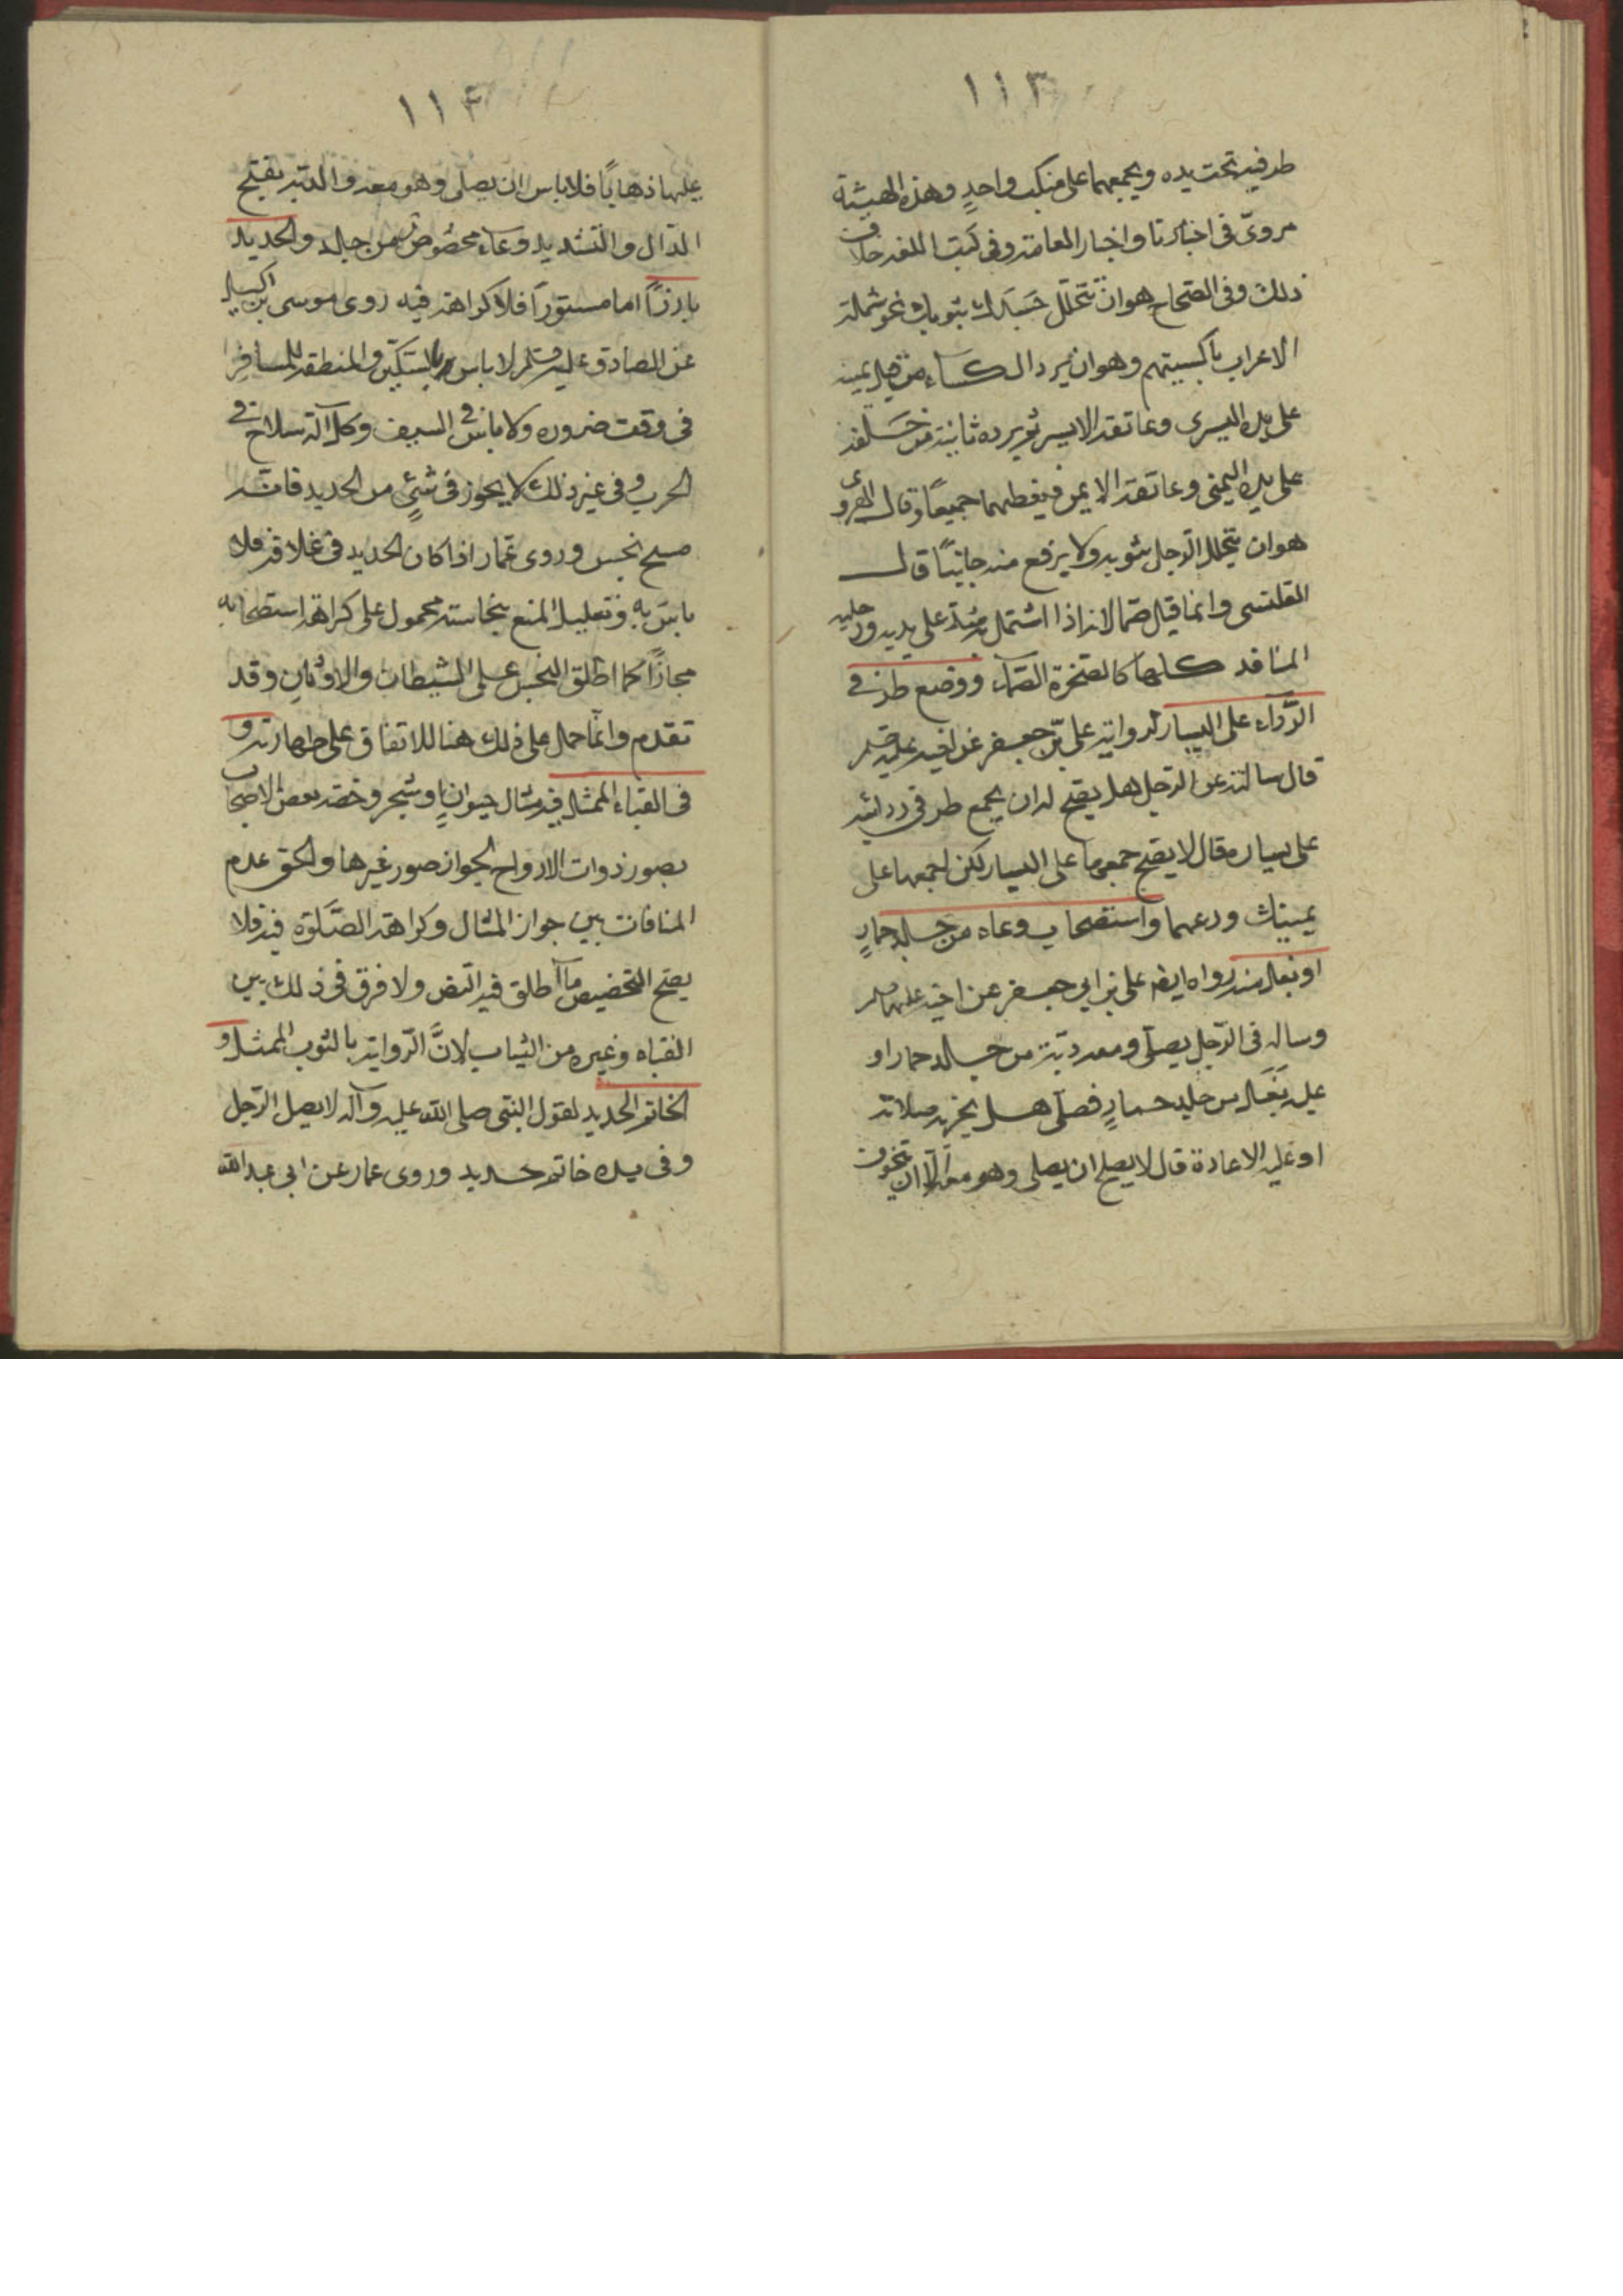 ١١٣
طرفيه تحت يده ويجمعهما على منكب واحدٍ وهذه الهيئة
مروىّ فى اخبارنا واخبار العامة وفى كتب اللغه خلاف
ذلك وفى الصحاح هوان تتجلل جسدك بثوبك نحو شملة
الاعراب باكسيتهم وهوان يرد الكساء من قبل يمينه
على يده اليسرى وعاتقه الايسر ثم يرده ثانية من خلفه
على يده اليمنى وعاتقه الايمن فيغطيهما جميعًا وقال الهروى
هوان يتجلل الرجل بثوبه ولا يرفع منه جانبًا قال
القلتبى وانما قيل صمّا لانه اذا اشتمل به شد على يديه ورجليه
المنافد كلها كالصخرة الصمّاء ووضع طرفى
الرّداء على اليسار لرواية علىّ بن جعفر عن اخيه عليه
قال سالته عن الرجل هل يصح له ان يجمع طرفى ردائه
على يساره قال لا يصح جمعهما على اليسار لكن اجمعهما على
يمينك ودعهما واستصحاب وعاء من جلد حمارٍ
او بغل منه رواه ايضا على بن ابى جعفر عن اخيه عليهما
وساله فى الرّجل يصلّى ومعه دبّة من جلد حمار او
عليه نعال من جلد حمارٍ فصلّى هل يجزيه صلاته
او عليه الاعادة قال لا يصلح ان يصلى وهو معه الّا ان يتخوف
١١٤
عليها ذهابًا فلا باس ان يصلى وهو معه والدبّة بفتح
الدّال والتشديد وعاء مخصوص من جلد والحديد
بارزًا اما مستورًا فلا كراهة فيه روى موسى بن اكيل
عن الصادق عليه لا باس بالسكين والمنطقه للمسافر
فى وقت ضروره ولا باس فى السيف وكل آلة سلاح فى
الحرب وفى غير ذلك لا يجوز فى شئٍ من الحديد فانه
مسح نجس وروى عمار اذا كان الحديد فى غلاف فلا
باس به وتعليل المنع بنجاسته محمول على كراهة استصحابه
مجازًا كما اطلق النجس على الشيطان والاوثان وقد
تقدم وانّما حمل على ذلك هنا للاتفاق على طهارته و
فى القباء الممثل فيه مثال حيوانٍ او شجر وخصه بعض الاصحاب
بصور ذوات الارواح لجواز صور غيرها والحق عدم
المنافات بين جواز المثال وكراهة الصّلوة فيه فلا
يصح التخصيص ما اطلق فيه النص ولا فرق فى ذلك بين
القباء وغيره من الثياب لانّ الرّواية بالثوب الممثل و
الخاتم الحديد لقول النبى صلى الله عليه وآله لا يصل الرّجل
وفى يده خاتم حديد وروى عمار عن ابى عبد الله